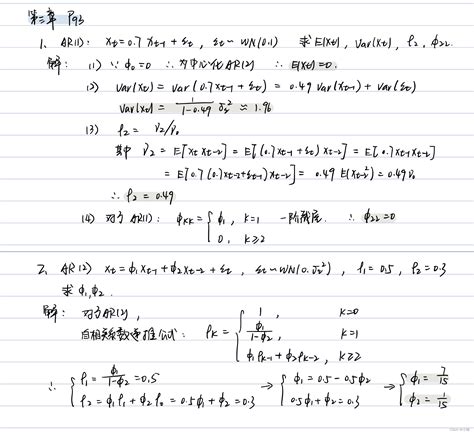 第三章 P93
1、AR(1): Xt=0.7Xt-1+εt, εt~WN(0,1) 求E(Xt), Var(Xt), ρ2, φ22
解: (1) ∵ φ0=0 ∴ 为中心化AR(2) ∴ E(Xt)=0.
(2) Var(Xt) = Var(0.7Xt-1+εt) = 0.49 Var(Xt-1) + Var(εt)
Var(Xt) = 1/(1-0.49) σε² ≈ 1.96
(3) ρ2 = γ2/γ0
其中 γ2 = E[XtXt-2] = E[(0.7Xt-1+εt)Xt-2] = E[0.7Xt-1Xt-2]
= E[0.7(0.7Xt-2+εt-1)Xt-2] = 0.49E(Xt-2²) = 0.49γ0
∴ ρ2 = 0.49
(4) 对于AR(1): φKK = { φ1, K=1 一阶截尾. ∴ φ22=0
0, K≥2
2、AR(2) Xt=φ1Xt-1+φ2Xt-2+εt, εt~WN(0,σε²), ρ1=0.5, ρ2=0.3
求 φ1,φ2.
解: 对于AR(2),
自相关系数递推公式: ρK = { 1, K=0
φ1/(1-φ2), K=1
φ1ρK-1+φ2ρK-2, K≥2
∴ { ρ1 = φ1/(1-φ2) = 0.5 → { φ1 = 0.5-0.5φ2 → { φ1 = 7/15
ρ2 = φ1ρ1+φ2ρ0 = 0.5φ1+φ2 = 0.3 0.5φ1+φ2 = 0.3 φ2 = 1/15